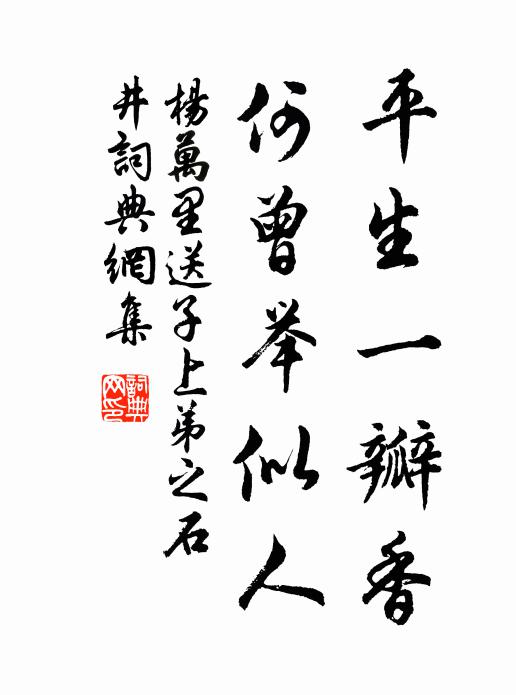 平生一瓣香
何曾举似人
楊萬里送子上弟之石
井詞典網集
詞典网印